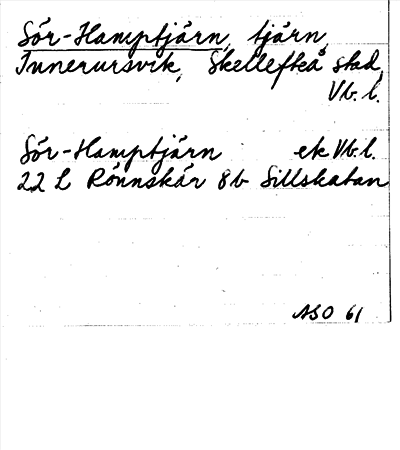 Sör-Hamptjärn, tjärn,
Innerursvik, Skellefteå stad,
Vb. l.
Sör-Hamptjärn ek Vb. l.
22 L Rönnskär 8b Sillskatan
ASO 61